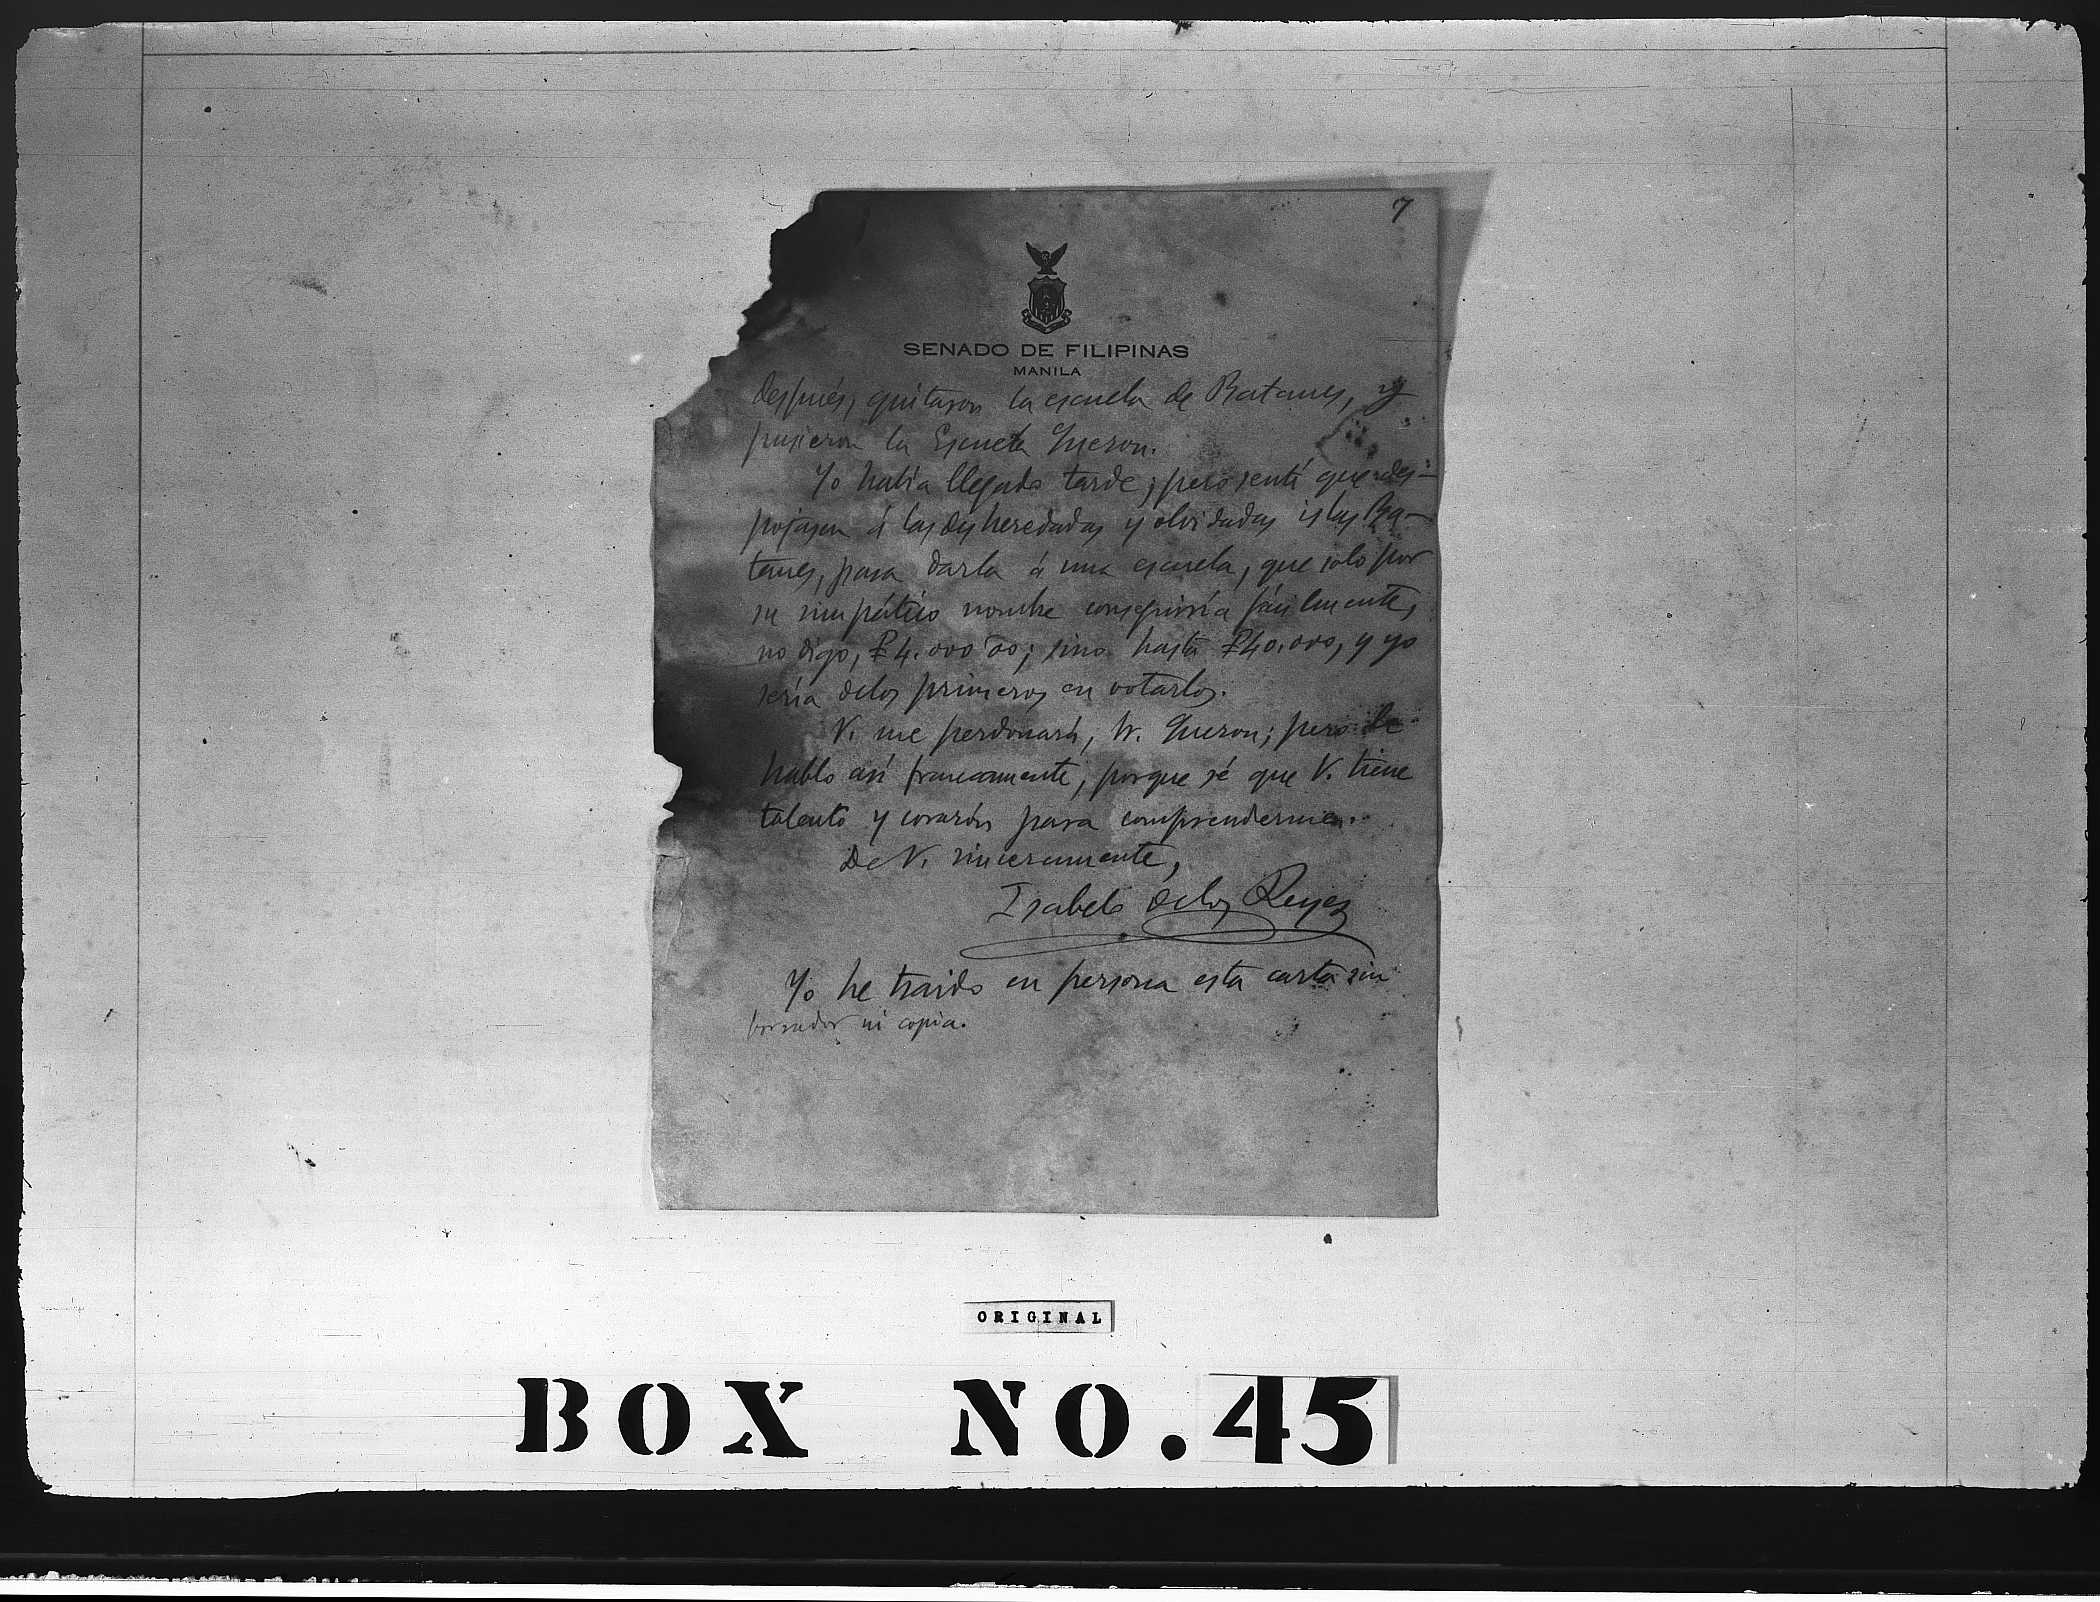 7
SENADO DE FILIPINAS
MANILA
después, quitaron la escuela de Batanes, y
pusieron la Escuela Quezon.
Yo había llegado tarde; pero sentí que des-
pojasen á las desheredadas y olvidadas islas Ba-
tanes, para darla á una escuela, que solo por
su simpático nombre conseguiría fácilmente,
no digo, ₱4.000 00; sino hasta ₱40.000, y yo
sería delos primeros en votarlos.
V. me perdonará, Sr. Quezon; pero le
hablo así francamente, porque sé que V. tiene
talento y corazón para comprenderme.
De V. sinceramente,
Isabelo delos Reyes
Yo he traido en persona esta carta sin
borrador ni copia.
ORIGINAL
BOX NO. 45